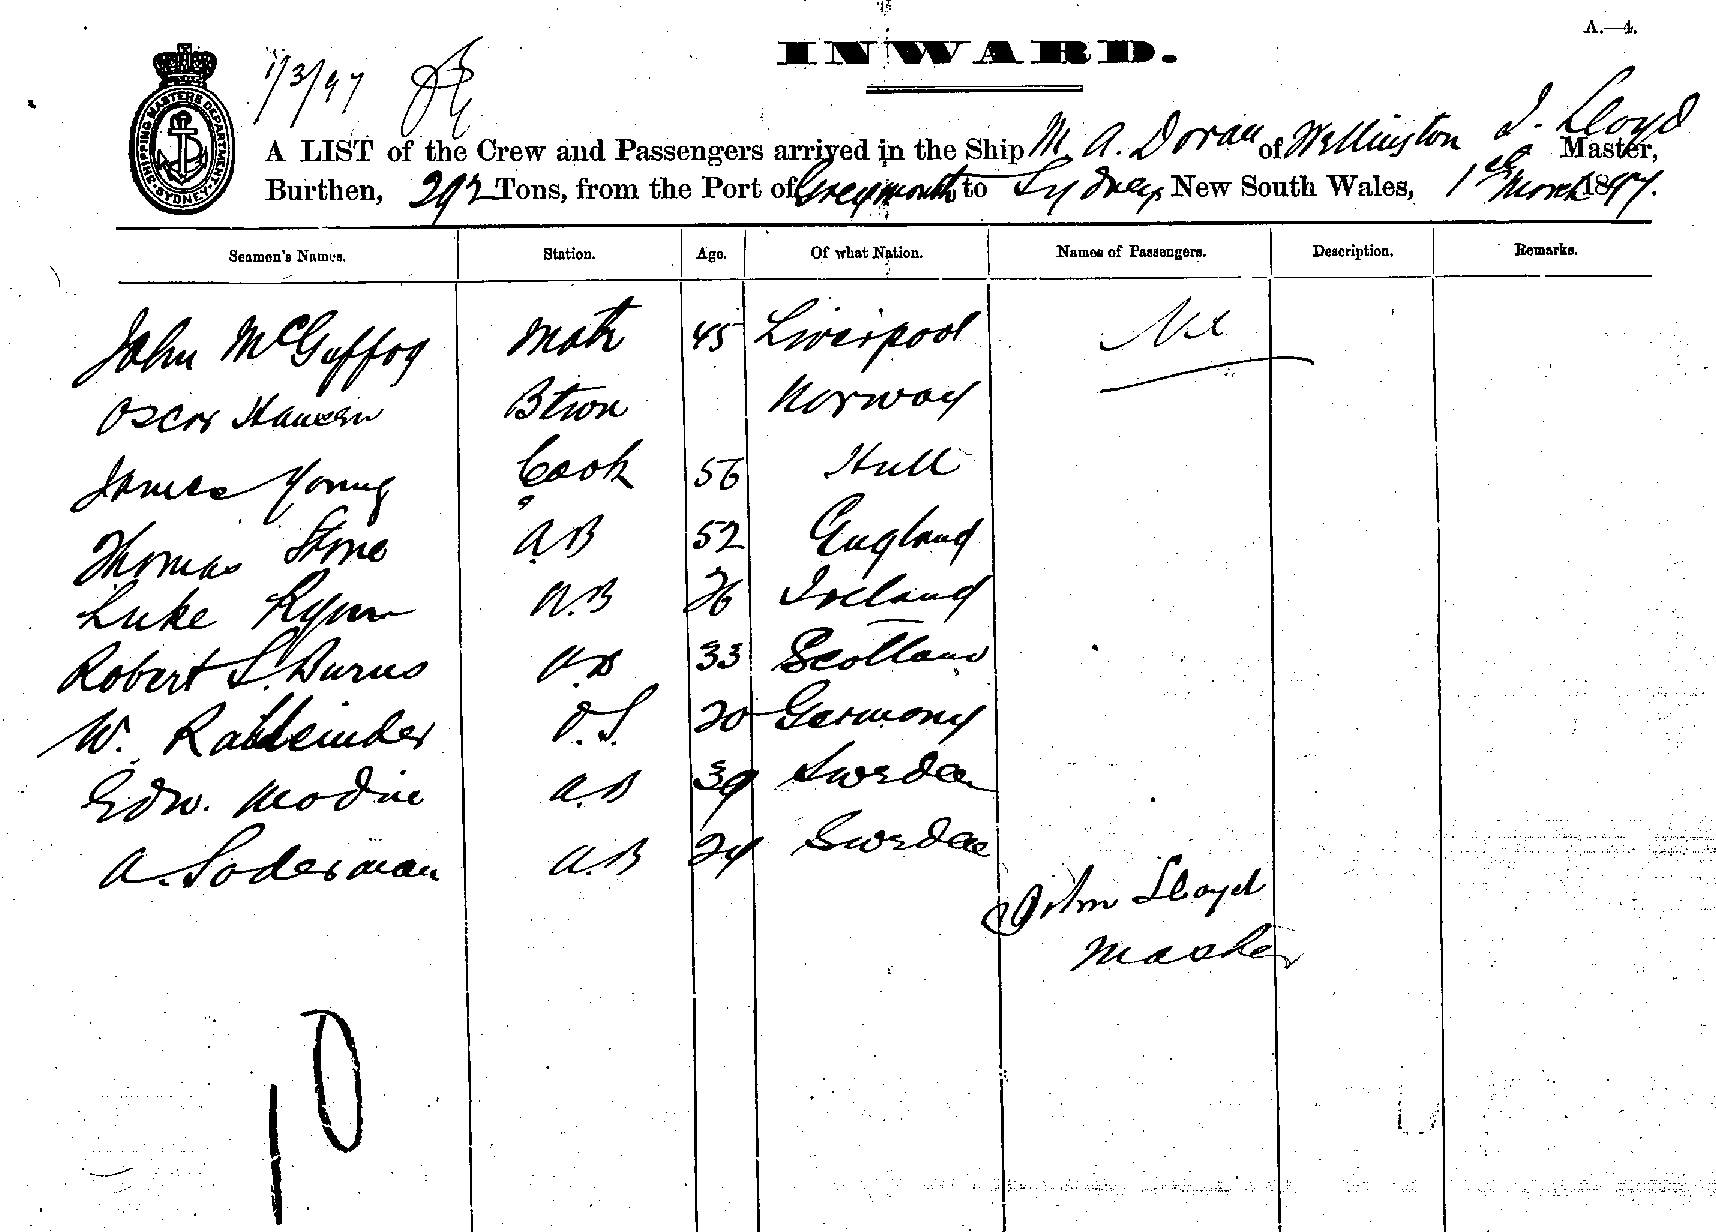 A.—4.
INWARD.
SHIPPING MASTERS DEPARTMENT SYDNEY
1/3/97
A LIST of the Crew and Passengers arrived in the Ship M. A. Doran of Wellington J. Lloyd Master,
Burthen, 292 Tons, from the Port of Greymouth to Sydney New South Wales, 1st March 1897.
Seamen's Names. Station. Age. Of what Nation. Names of Passengers. Description. Remarks.
John McGuffog Mate 45 Liverpool Nil
Oscar Hansen Btswn Norway
James Young Cook 56 Hull
Thomas Stone A.B 52 England
Luke Rynn A.B 26 Ireland
Robert S. Burns A.B 33 Scotland
W. O.S. 20 Germany
Edw. Modin A.B 39 Sweden
A. Soderman A.B 24 Sweden
John Lloyd
Master
10